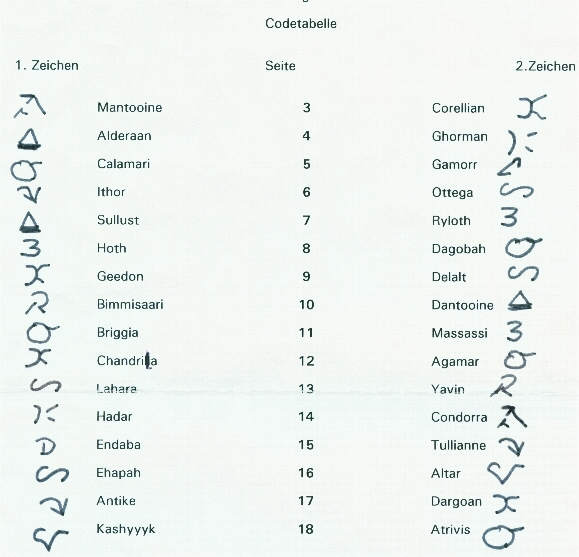 Codetabelle
1. Zeichen Seite 2.Zeichen
Mantooine 3 Corellian
Alderaan 4 Ghorman
Calamari 5 Gamorr
Ithor 6 Ottega
Sullust 7 Ryloth
Hoth 8 Dagobah
Geedon 9 Delalt
Bimmisaari 10 Dantooine
Briggia 11 Massassi
Chandrilla 12 Agamar
Lahara 13 Yavin
Hadar 14 Condorra
Endaba 15 Tullianne
Ehapah 16 Altar
Antike 17 Dargoan
Kashyyyk 18 Atrivis